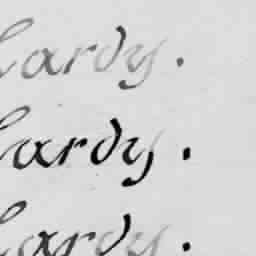 Hardy.
Hardy.
Hardy.